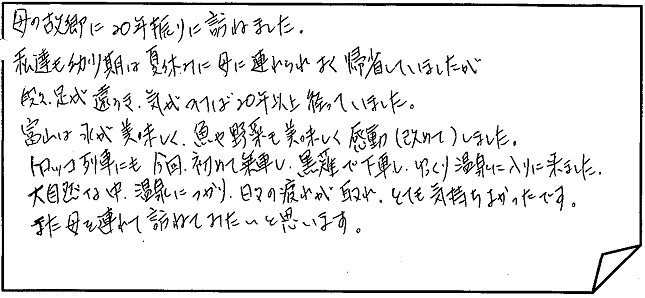 母の故郷に20年振りに訪ねました。
私達も幼少期は夏休みに母に連れられよく帰省していましたが
段々足が遠のき、気がつけば20年以上経っていました。
富山は水が美味しく、魚や野菜も美味しく感動(改めて)しました。
トロッコ列車にも今回、初めて乗車し、黒薙で下車し、ゆっくり温泉に入りに来ました。
大自然な中、温泉につかり、日々の疲れが取れ、とても気持ちよかったです。
また母を連れて訪ねてみたいと思います。